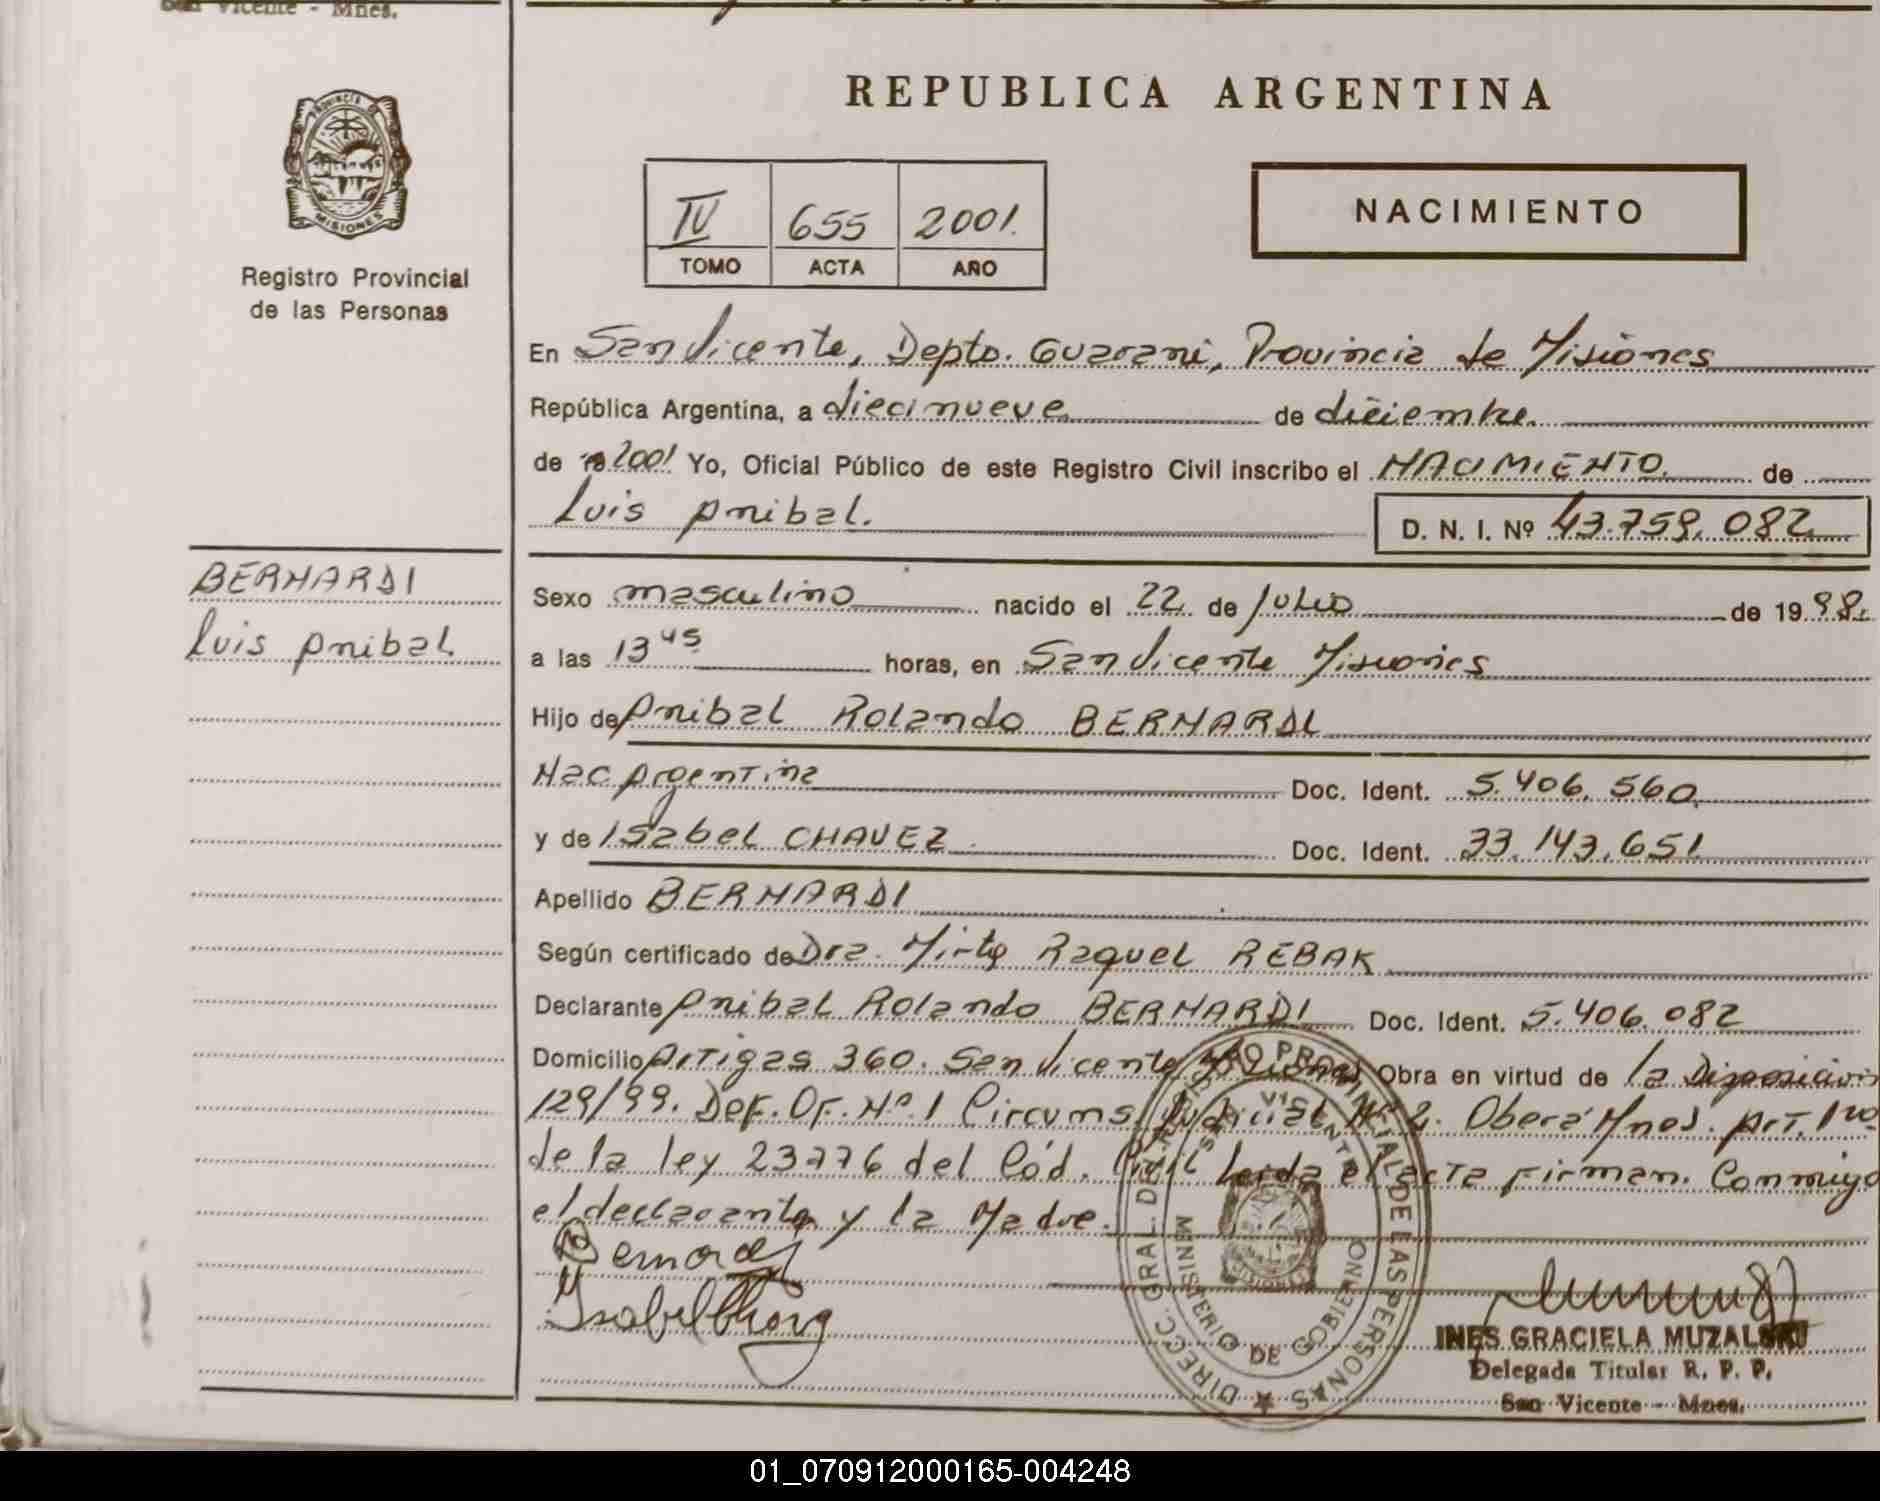 San Vicente - Mnes.
PROVINCIA DE
MISIONES
Registro Provincial
de las Personas
REPUBLICA ARGENTINA
IV 655 2001.
TOMO ACTA AÑO
NACIMIENTO
En San Vicente, Depto. Guarani, Provincia de Misiones
República Argentina, a diecinueve de diciembre.
de 19 2001 Yo, Oficial Público de este Registro Civil inscribo el NACIMIENTO. de
Luis Anibal.
D. N. I. Nº 43.759.082
BERNARDI
Luis Anibal
Sexo masculino nacido el 22 de Julio de 1998.
a las 13 45 horas, en San Vicente Misiones
Hijo de Anibal Rolando BERNARDI
Nac Argentina Doc. Ident. 5.406.560
y de Isabel CHAVEZ Doc. Ident. 33.143.651
Apellido BERNARDI
Según certificado de Dra. Mirta Raquel REBAK
Declarante Anibal Rolando BERNARDI Doc. Ident. 5.406.082
Domicilio Artigas 360. San Vicente Misiones Obra en virtud de la Disposición
129/99. Def. Of. Nº 1 Circuns. Judicial Nº 2. Oberá Mnes. Art. 1ro
de la ley 23776 del Cód. Civil Leida el acta firman. Conmigo
el declarante y la Madre.
Bernardi
Isabel Chavez
DIRECC. GRAL. DEL REGISTRO PROVINCIAL DE LAS PERSONAS
MINISTERIO DE GOBIERNO
SAN VICENTE
MISIONES
INES GRACIELA MUZALSKI
Delegada Titular R. P. P.
San Vicente - Mnes.
01_070912000165-004248